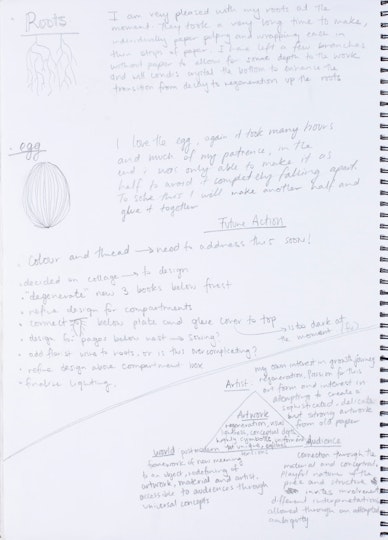 Roots
I am very pleased with my roots at the
moment. they took a very long time to make,
individually paper pulping and wrapping each in
thin strips of paper. I have left a few branches
without paper to allow for some depth to the work
and will leave the bottom to enhance the
transition from decay to regeneration up the roots
egg
I love the egg, again it took many hours
and much of my patience, in the
end i was only able to make it as
half to avoid it completely falling apart.
To solve this I will make another half and
glue it together
Future Action
Colour and thread → need to address this soon!
decided on collage → to design
"degenerate" new 3 books below forest
refine design for compartments
connect below plate and glue cover to top
→ is too dark at
the moment
design for pages below nest → sewing?
add finest wire to roots, or is this overcomplicating?
refine design above compartment box
finalise lighting.
my own interest in growth/
regeneration, passion for this
art form and interest in
attempting to create a
sophisticated, delicate
but strong artwork
from old paper
Artist
Artwork
regeneration,
conceptual depth,
highly symbolic
world
framework of new meaning
to an object, redefining of
artwork, material and artist.
accessible to audiences through
universal concepts
audience
connection through the
material and conceptual
playful nature of the
and structure
invites
different interpretations
allowed through an
ambiguity